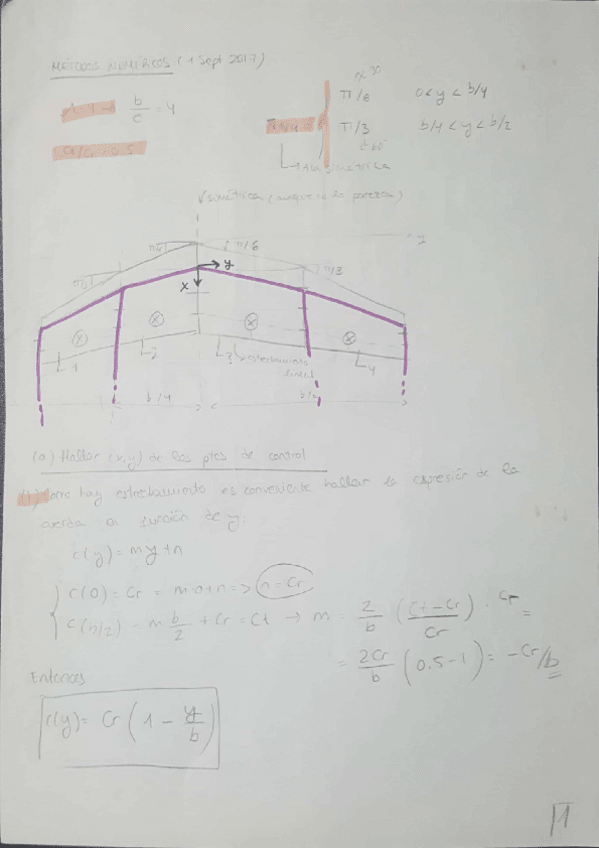 MÉTODOS NUMÉRICOS (1 Sept 2017)
b/c = 4
π/6 0 < y < b/4
π/3 b/4 < y < b/2
simétrica (aunque no lo parezca)
π/6
y
π/3
y
x
1
2
3
4
estrechamiento
lineal
b/4
b/2
(a) Hallar (x,y) de los ptos de control
como hay estrechamiento es conveniente hallar la expresión de la
cuerda en función de y:
c(y) = my + n
c(0) = Cr = m·0 + n => n = Cr
c(b/2) = m b/2 + Cr = Ct → m = 2/b (Ct - Cr / Cr) · Cr =
= 2Cr/b (0.5 - 1) = -Cr/b
Entonces
c(y) = Cr (1 - y/b)
1